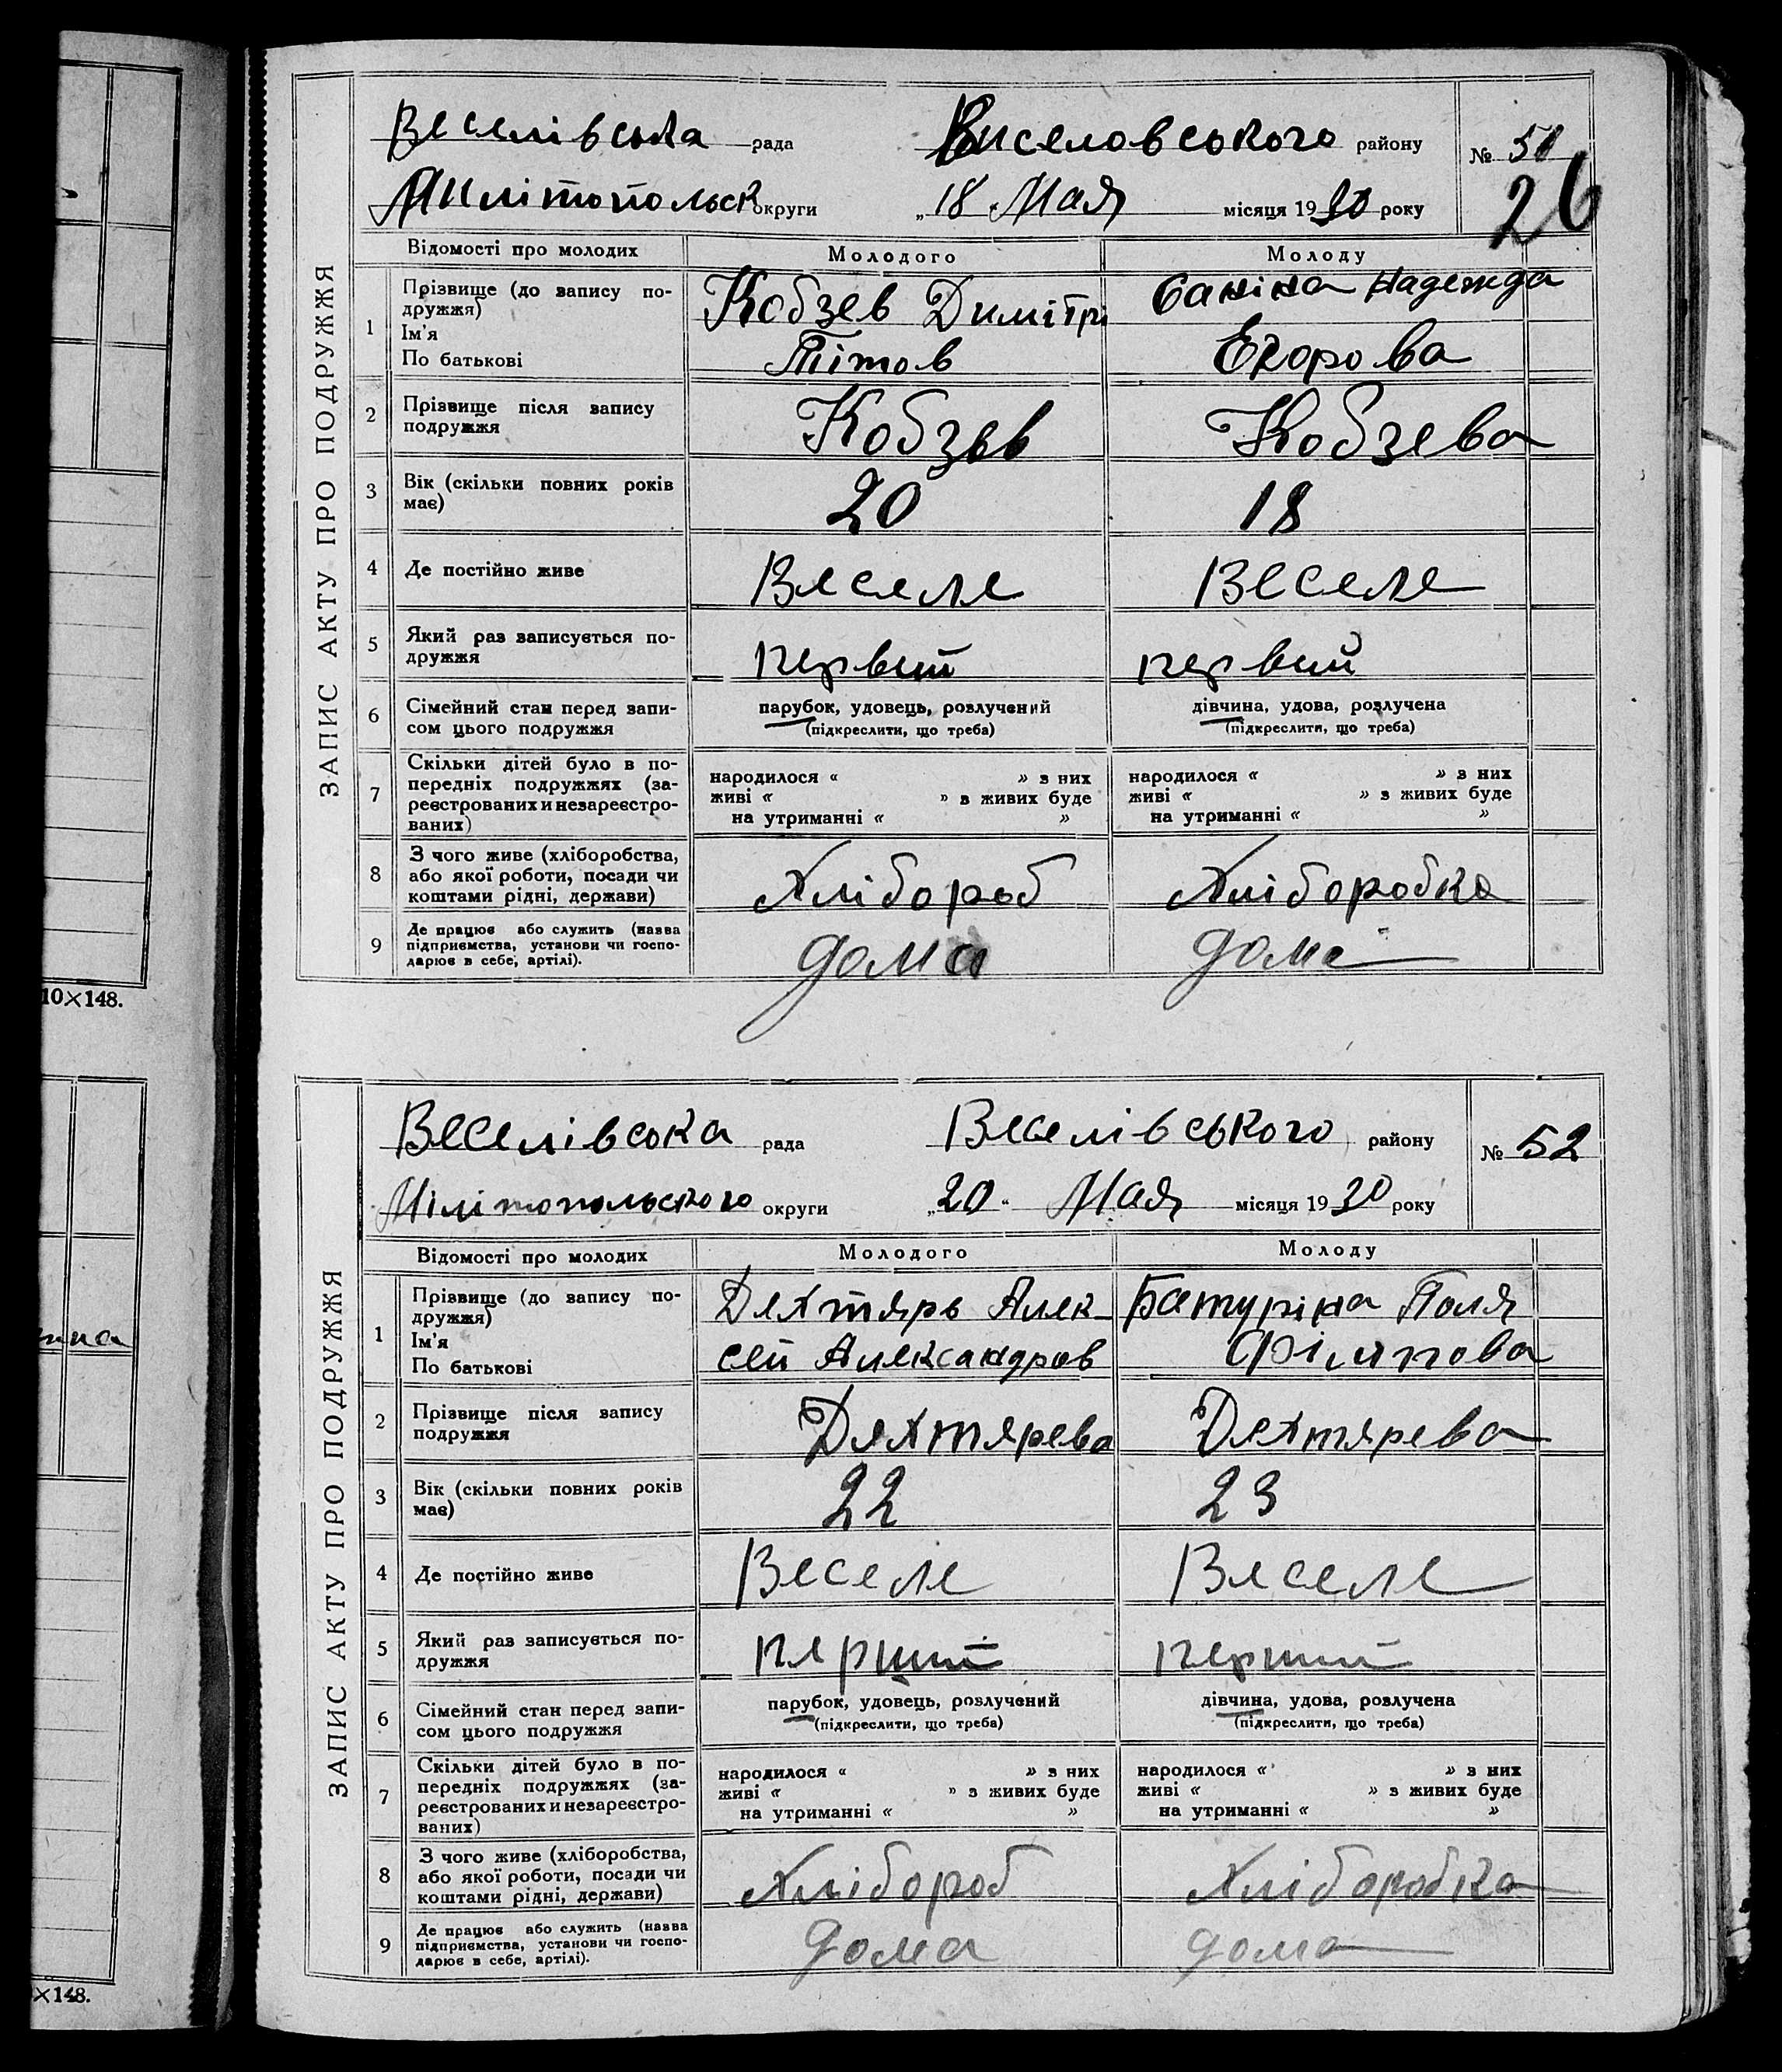 Веселівська рада Виселовського району № 51
26
Мілітопольск округи „18 Мая місяця 1930 року
ЗАПИС АКТУ ПРО ПОДРУЖЖЯ
Відомості про молодих Молодого Молоду
1 Прізвище (до запису по-
дружжя)
Ім'я
По батькові
Кобзев Димітрі
Тітов
Саніна Надежда
Егорова
2 Прізвище після запису
подружжя
Кобзев Кобзева
3 Вік (скільки повних років
має)
20 18
4 Де постійно живе Веселе Веселе
5 Який раз записується по-
дружжя
первий первий
6 Сімейний стан перед запи-
сом цього подружжя
парубок, удовець, розлучений
(підкреслити, що треба)
дівчина, удова, розлучена
(підкреслити, що треба)
7 Скільки дітей було в по-
передніх подружжях (за-
реєстрованих и незареєстро-
ваних)
народилося « » з них
живі « » з живих буде
на утриманні « »
народилося « » з них
живі « » з живих буде
на утриманні « »
8 З чого живе (хліборобства,
або якої роботи, посади чи
коштами рідні, держави)
Хлібороб Хліборобка
9 Де працює або служить (назва
підприємства, установи чи госпо-
дарює в себе, артілі).
дома дома
10×148.
Веселівська рада Веселівського району № 52
Мілітопольского округи „20" Мая місяця 1930 року
ЗАПИС АКТУ ПРО ПОДРУЖЖЯ
Відомості про молодих Молодого Молоду
1 Прізвище (до запису по-
дружжя)
Ім'я
По батькові
Дехтярь Алек-
сей Александров
Батуріна Поля
Філипова
2 Прізвище після запису
подружжя
Дехтярева Дехтярева
3 Вік (скільки повних років
має)
22 23
4 Де постійно живе Веселе Веселе
5 Який раз записується по-
дружжя
перший перший
6 Сімейний стан перед запи-
сом цього подружжя
парубок, удовець, розлучений
(підкреслити, що треба)
дівчина, удова, розлучена
(підкреслити, що треба)
7 Скільки дітей було в по-
передніх подружжях (за-
реєстрованих и незареєстро-
ваних)
народилося « » з них
живі « » з живих буде
на утриманні « »
народилося « » з них
живі « » з живих буде
на утриманні « »
8 З чого живе (хліборобства,
або якої роботи, посади чи
коштами рідні, держави)
Хлібороб Хліборобка
9 Де працює або служить (назва
підприємства, установи чи госпо-
дарює в себе, артілі).
дома дома
×148.